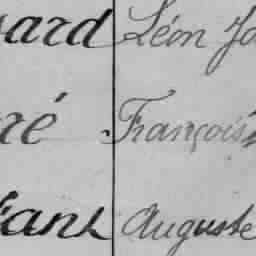 ard Léon
ré François
fant Auguste